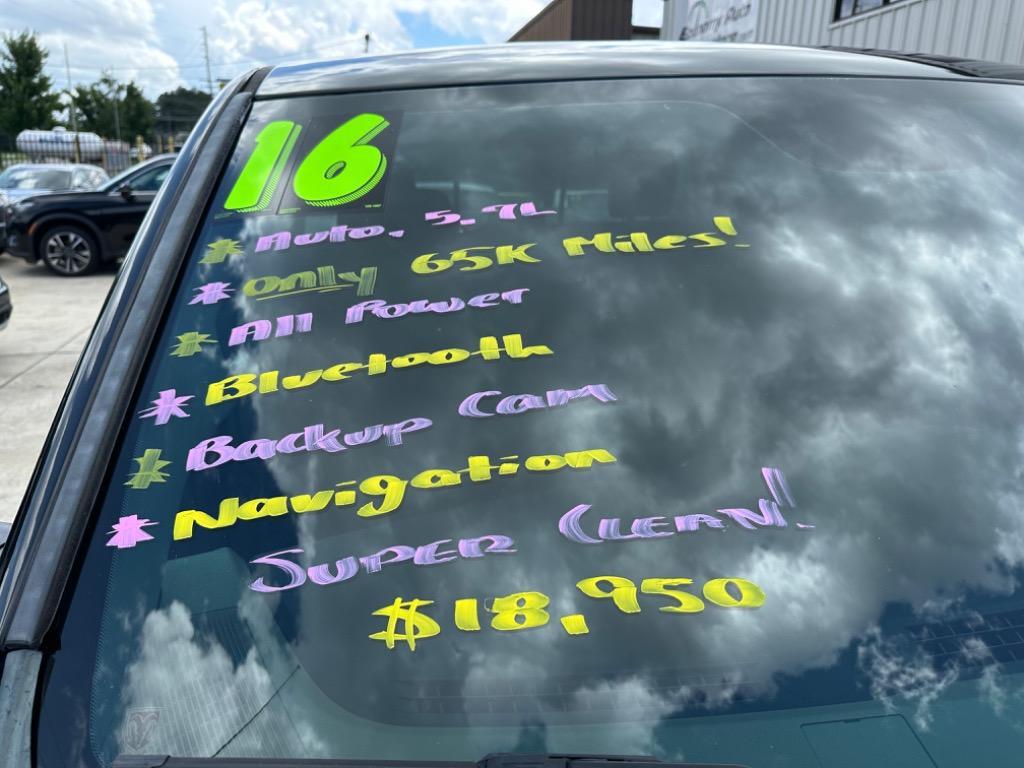 16
* Auto, 5.7L
* Only 65K Miles!
* All Power
* Bluetooth
* Backup Cam
* Navigation
Super Clean!
$18,950